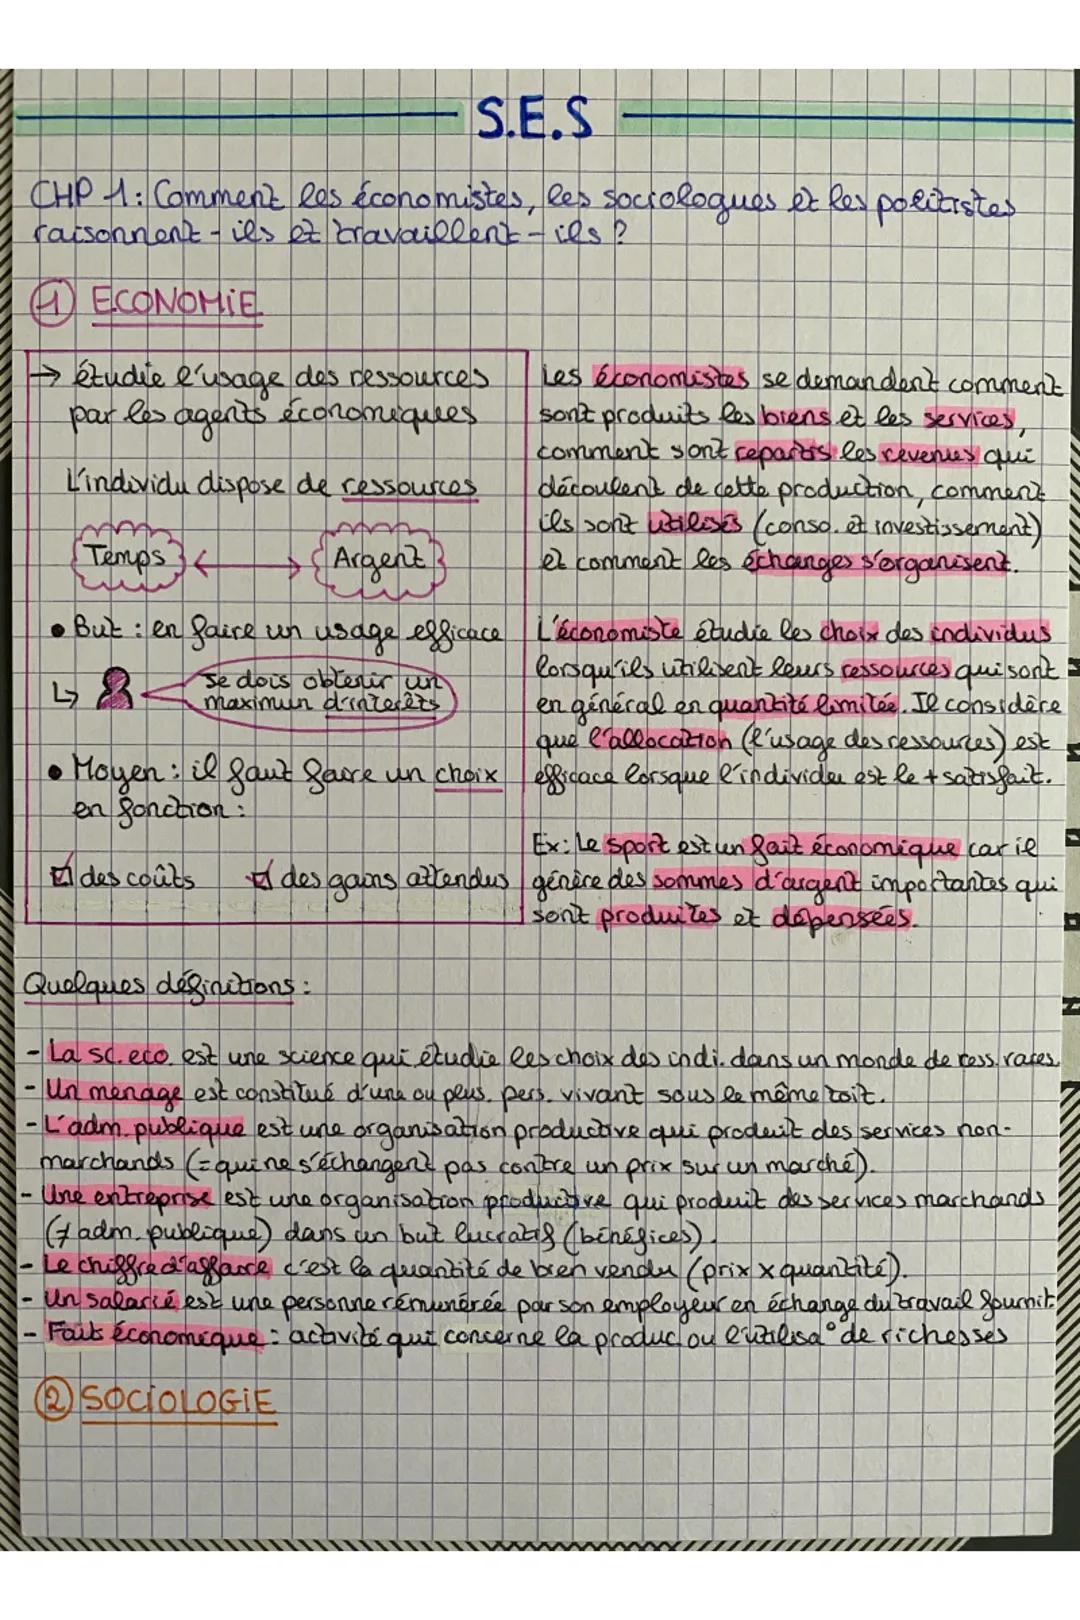 S.E.S
CHP 1: Comment les économistes, les sociologues et les politistes
raisonnent-ils et travaillent-ils ?
1 ECONOMIE
→ étudie l'usage des ressources
par les agents économiques
L'individu dispose de ressources
Temps ↔ Argent
• But : en faire un usage efficace
↳ se dois obtenir un
maximun d'interêts
• Moyen : il faut faire un choix
en fonction :
☑ des coûts ☑ des gains attendus
Les économistes se demandent comment
sont produits les biens et les services,
comment sont repartis les revenus qui
découlent de cette production, comment
ils sont utilisés (conso. et investissement)
et comment les échanges s'organisent.
L'économiste étudie les choix des individus
lorsqu'ils utilisent leurs ressources qui sont
en général en quantité limitée. Il considère
que l'allocation (l'usage des ressources) est
efficace lorsque l'individu est le + satisfait.
Ex: Le sport est un fait économique car il
génère des sommes d'argent importantes qui
sont produites et dépensées.
Quelques définitions :
- La sc. eco. est une science qui étudie les choix des indi. dans un monde de ress. rares.
- Un menage est constitué d'une ou plus. pers. vivant sous le même toit.
- L'adm. publique est une organisation productive qui produit des services non-
marchands (= qui ne s'échangent pas contre un prix sur un marché).
- Une entreprise est une organisation productive qui produit des services marchands
(≠ adm. publique) dans un but lucratif (bénéfices).
- Le chiffre d'affaire c'est la quantité de bien vendu (prix x quantité).
- Un salarié est une personne rémunérée par son employeur en échange du travail fournit.
- Fait économique : activité qui concerne la produc. ou l'utilisa° de richesses
2 SOCIOLOGIE